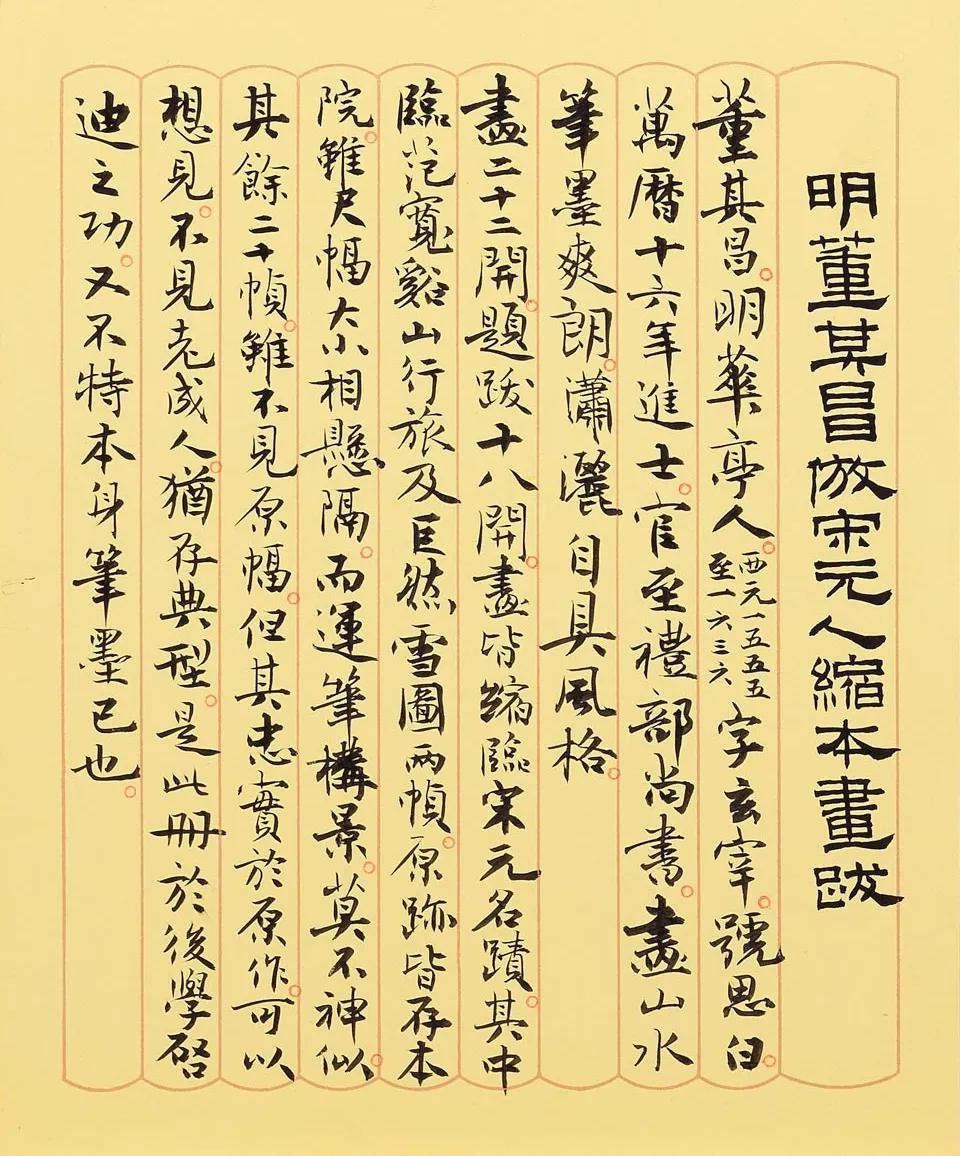 明董其昌倣宋元人縮本畫跋
董其昌。明華亭人。西元一五五五至一六三六字玄宰。號思白。
萬曆十六年進士。官至禮部尚書。畫山水
筆墨爽朗。瀟灑自具風格。
畫二十二開。題跋十八開。畫皆縮臨宋元名蹟。其中
臨范寬谿山行旅及巨然雪圖兩幀。原跡皆存本
院。雖尺幅大小相懸隔。而運筆構景。莫不神似。
其餘二十幀。雖不見原幅。但其忠實於原作。可以
想見。不見老成人。猶存典型。是此冊於後學啓
迪之功。又不特本身筆墨已也。